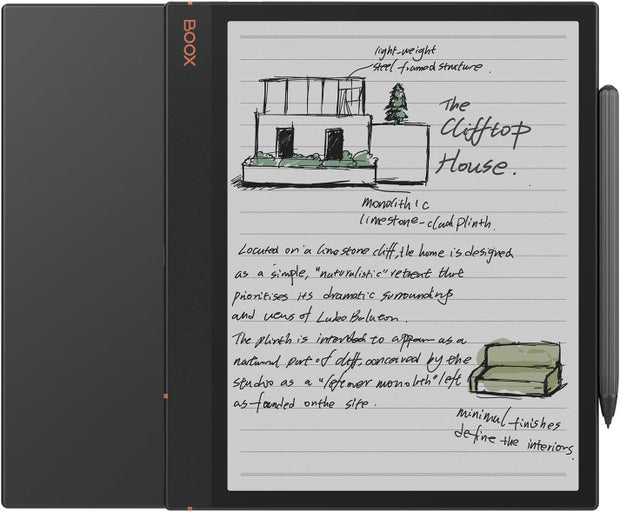 BOOX
light-weight
steel framed structure.
The
Clifftop
House.
monolithic
limestone-clad plinth.
Located on a limestone cliff, the home is designed
as a simple, "naturalistic" retreat that
prioritises its dramatic surroundings
and views of Lake
The plinth is intended to appear as a
natural part of cliff, conceived by the
studio as a "leftover monolith" left
as-founded on the site.
minimal finishes
define the interiors.